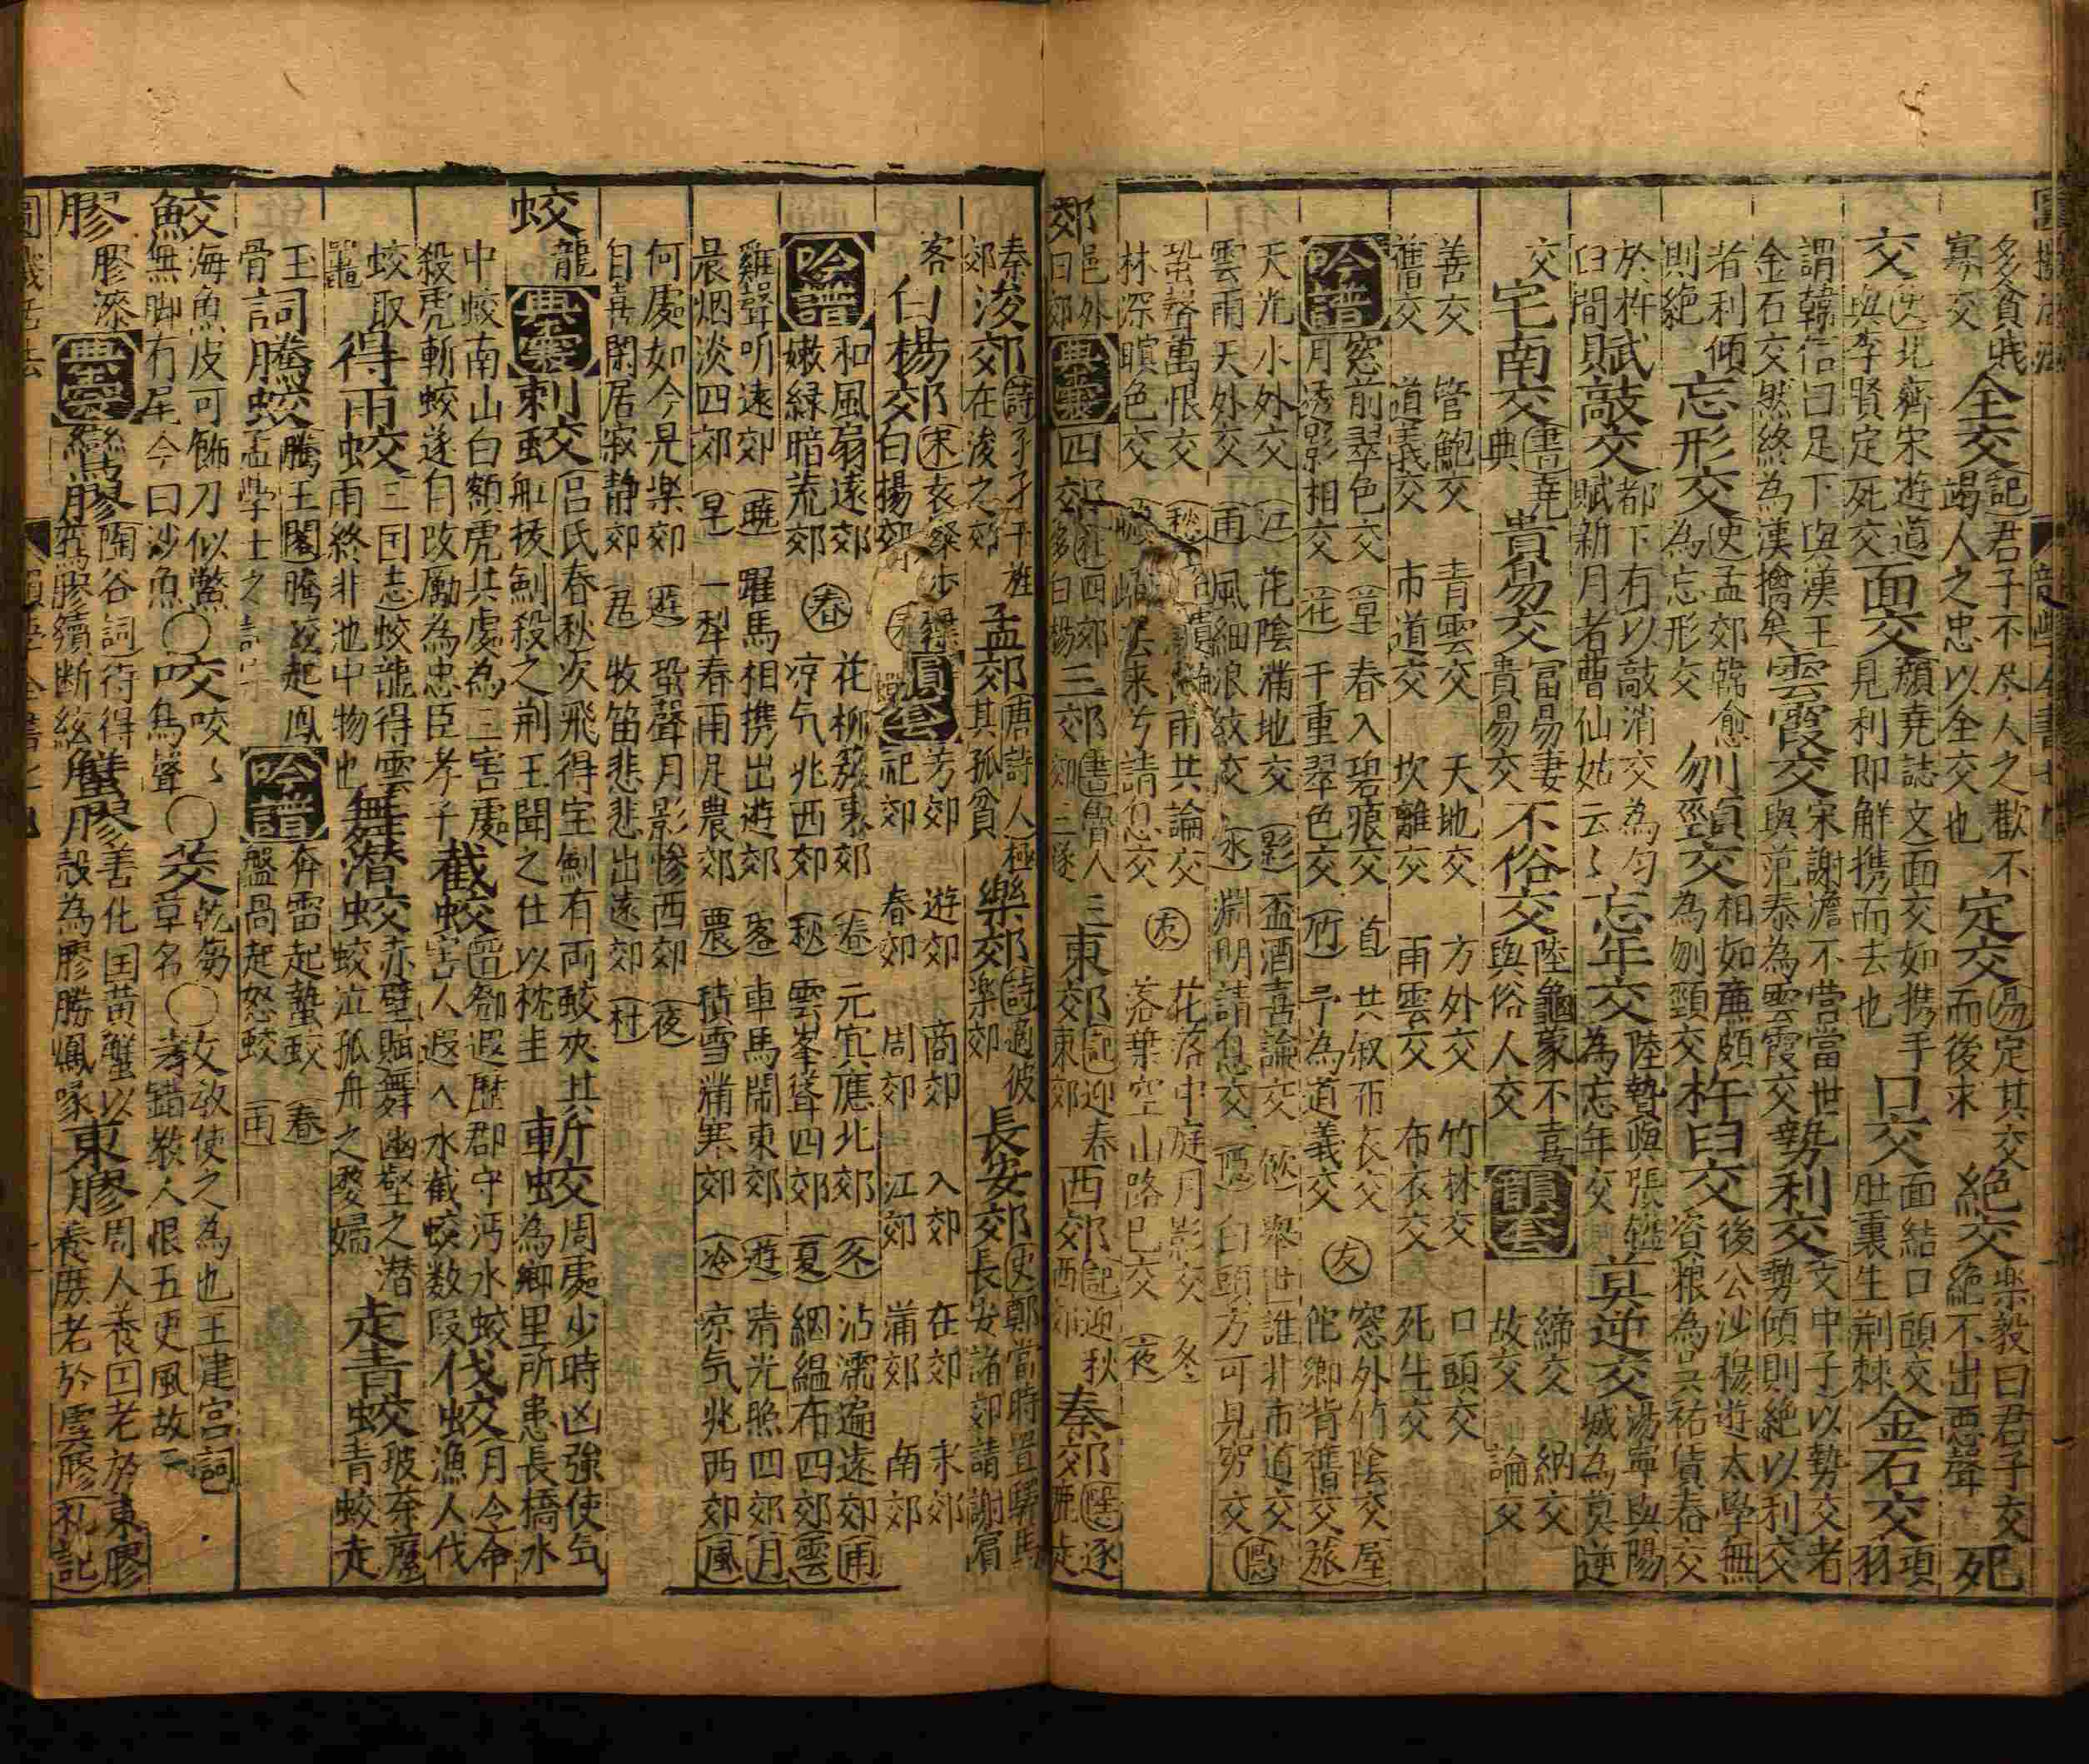 多貧賎
寡交
全交
記君子不尽人之歡不
竭人之忠以全交也
定交
易定其交
而後求
絶交
楽毅曰君子交
絶不出悪聲
死
交
史北齊宋遊道
與李賢定死交
面交
顔堯誌文面交如携手
見利即解携而去也
口交
面結口頭交
肚裏生荆棘
金石交
項
羽
謂韓信曰足下與漢王
金石交然終為漢擒矣
雲霞交
宋謝澹不営當世
與范泰為雲霞交
勢利交
文中子以勢交者
勢傾則絶以利交
者利傾
則絶
忘形交
史孟郊韓愈
為忘形交
刎頸交
相如廉頗
為刎頸交
杵臼交
後公沙穆遊太學無
資粮為呉祐賃舂交
於杵
臼間
賦敲交
都下有以敲消交為勻
賦新月者曹仙姑云〻
忘年交
陸贄與張鎰
為忘年交
莫逆交
湯寧與陽
城為莫逆
交
宅南交
書堯
典
貴易交
冨易妻
貴易交
不俗交
陸龜蒙不喜
與俗人交
韻套
締交 納交
故交 論交
善交 管鮑交 青雲交 天地交 方外交 竹林交 口頭交
舊交 道義交 市道交 坎離交 雨雲交 布衣交 死生交
吟譜
窓前翠色交 草 春入碧痕交 直 共叙布衣交 友 窓外竹陰交 屋
月透影相交 花 千重翠色交 竹 予為道義交 陀卿背舊交 旅
天光小外交 江 花陰滿地交 影 盃酒喜論交 飲 舉世誰非市道交
雲雨天外交 雨 風細浪紋交 水 淵明請息交 隠 白頭方可見窮交 隠
蛩聲萬恨交 愁 雨共論交 友 花落中庭月影交 冬
林深暝色交 去来兮請息交 落葉空山路已交 夜
郊
邑外
曰郊
典故
四郊
四郊
多
三郊
書魯人
三郊三遂
東郊
記迎春
東郊
西郊
記迎秋
西郊
秦郊
逐
鹿走
秦
郊
浚郊
詩孑孑干旌
在浚之郊
孟郊
唐詩人極
其孤貧
樂郊
詩適彼
楽郊
長安郊
史鄭當時置驛馬
長安諸郊請謝賓
客
白楊郊
宋袁粲步
白楊郊
韻套
芳郊 遊郊 商郊 入郊 在郊 末郊
祀郊 春郊 周郊 江郊 蒲郊 南郊
吟譜
和風扇遠郊 春 花柳簇東郊 春 元冥應北郊 冬 沾濡遍遠郊 雨
嫩緑暗荒郊 凉气兆西郊 秋 雲峯聳四郊 夏 絪緼布四郊 雲
雞聲听遠郊 暁 躍馬相携出遊郊 客 車馬閙東郊 遊 清光照四郊 月
晨烟淡四郊 早 一犁春雨足農郊 農 積雪滿寒郊 冷 凉气兆西郊 風
何處如今是楽郊 遊 蛩聲月影惨西郊 夜
自喜閑居寂静郊 居 牧笛悲悲出遠郊 村
蛟
龍
典故
刺蛟
吕氏春秋次飛得宝劍有両蛟夾其
舡拔劍殺之荆王聞之仕以枕圭
斬蛟
周處少時凶強使气
為鄉里所患長橋水
中蛟南山白額虎共處為三害處
殺虎斬蛟遂自改勵為忠臣孝子
截蛟
晋鄧遐歷郡守沔水蛟
害人遐入水截蛟数段
伐蛟
月令命
漁人伐
蛟取
鼉
得雨蛟
三国志蛟龍得雲
雨終非池中物也
舞潜蛟
赤壁賦舞幽壑之潜
蛟泣孤舟之嫠婦
走青蛟
玻荼塵
青蛟走
玉
骨
詞騰蛟
騰王閣騰蛟起鳳
孟學士之詞宗
吟譜
奔雷起蟄蛟 春
盤曷起怒蛟 雨
鮫
海魚皮可飾刀似鱉
無脚有尾今曰沙魚
〇咬
咬〻
為聲
〇茭
乾芻
草名
〇教
文敎使之為也王建宮詞
錯教人恨五更風故二
膠
膠漆
典故
鸞膠
陶谷詞待得
鸞膠續断絃
蟹膠
善化国黄蟹以
殻為膠勝鳳喙
東膠
周人養国老於東膠
養庶老於虞膠礼記